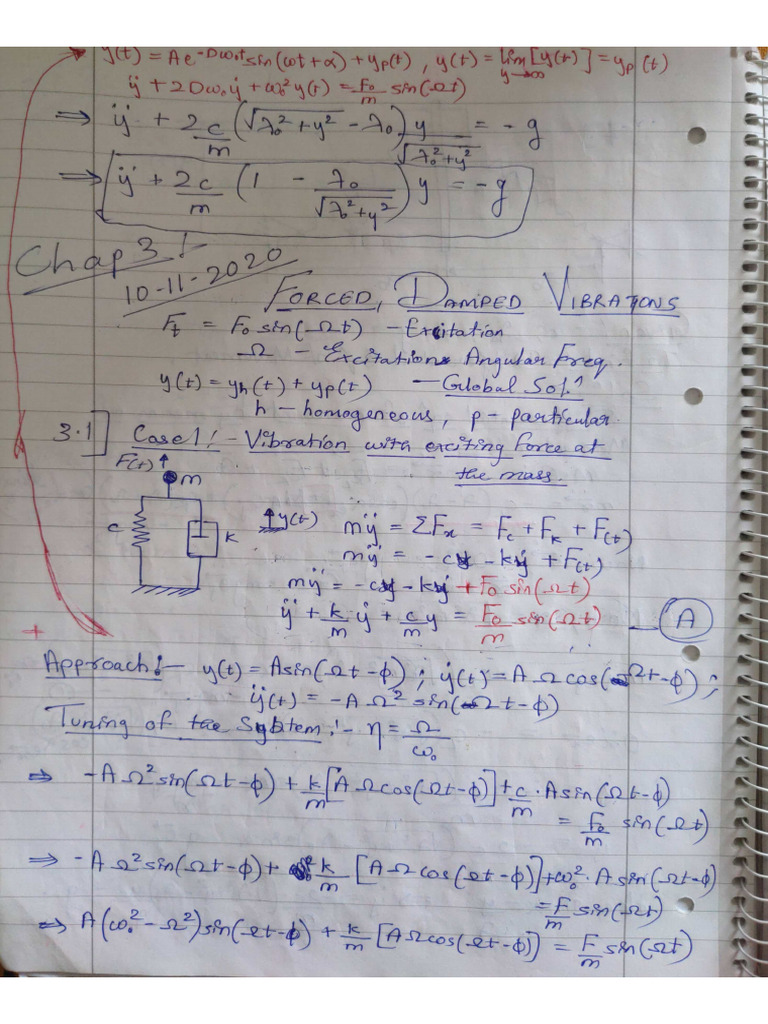 y(t) = Ae^-Dω₀t sin(ωt + α) + yp(t), y(t) = lim y→∞ [y(t)] = yp(t)
ÿ + 2Dω₀ẏ + ω₀²y(t) = F₀/m sin(Ωt)
⇒ ÿ + 2c/m (√(λ₀² + y²) - λ₀) y/√(λ₀² + y²) = -g
⇒ ÿ + 2c/m (1 - λ₀/√(λ₀² + y²)) y = -g
Chap 3 !
10-11-2020
FORCED, DAMPED VIBRATIONS
Ft = F₀ sin(Ωt) - Excitation
Ω - Excitation Angular Freq.
y(t) = yh(t) + yp(t) - Global Sol.
h - homogeneous, p - particular
3.1] Case 1 :- Vibration with exciting force at
the mass.
F(t) ↑
m
c
k
y(t)
mÿ = ΣFx = Fc + Fk + F(t)
mÿ = -cy - kẏ + F(t)
mÿ = -cy - kẏ + F₀ sin(Ωt)
ÿ + k/m ẏ + c/m y = F₀/m sin(Ωt) — A
Approach :- y(t) = A sin(Ωt - ϕ) ; ẏ(t) = A Ω cos(Ωt - ϕ) ;
ÿ(t) = -A Ω² sin(Ωt - ϕ)
Tuning of the System :- η = Ω/ω₀
⇒ -A Ω² sin(Ωt - ϕ) + k/m [A Ω cos(Ωt - ϕ)] + c/m · A sin(Ωt - ϕ)
= F₀/m sin(Ωt)
⇒ -A Ω² sin(Ωt - ϕ) + k/m [A Ω cos(Ωt - ϕ)] + ω₀² · A sin(Ωt - ϕ)
= F/m sin(Ωt)
⇒ A(ω₀² - Ω²) sin(Ωt - ϕ) + k/m [A Ω cos(Ωt - ϕ)] = F/m sin(Ωt)